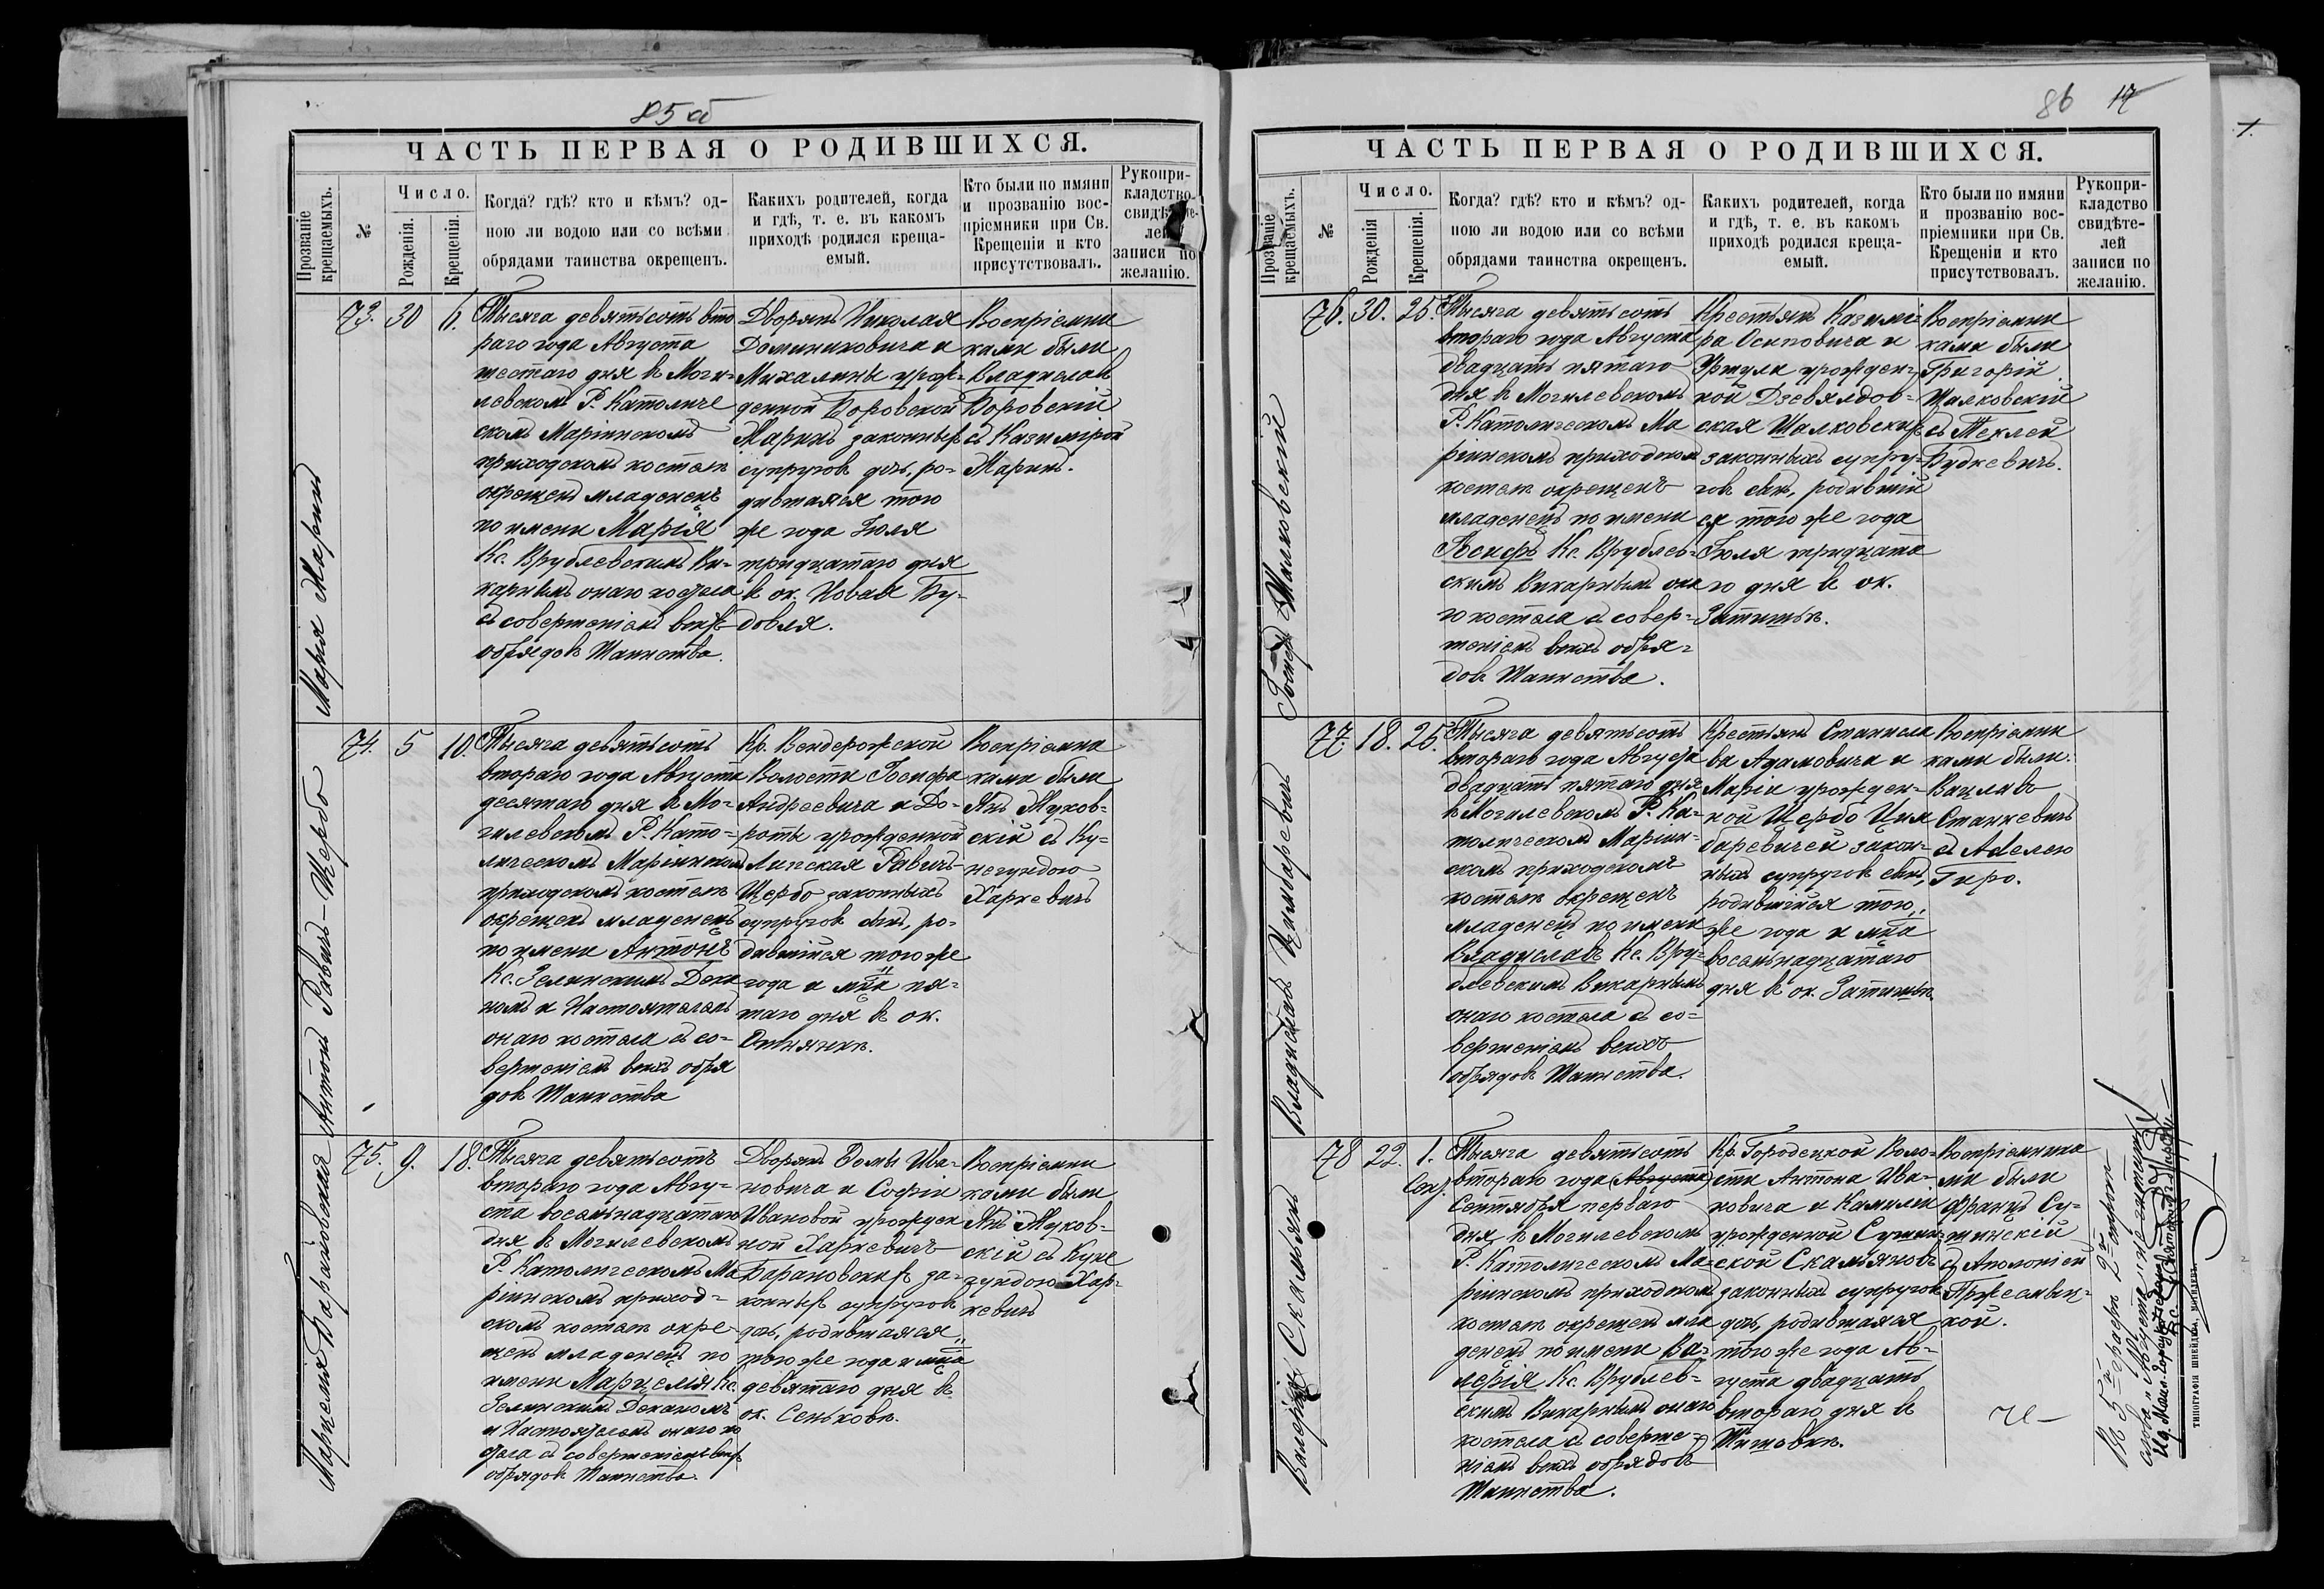 85 об
ЧАСТЬ ПЕРВАЯ О РОДИВШИХСЯ.
Прозваніе крещаемыхъ.
№
Число.
Рожденія.
Крещенія.
Когда? гдѣ? кто и кѣмъ? од-
ною ли водою или со всѣми
обрядами таинства окрещенъ.
Какихъ родителей, когда
и гдѣ, т. е. въ какомъ
приходѣ родился креща-
емый.
Кто были по имяни
и прозванію вос-
пріемники при Св.
Крещеніи и кто
присутствовалъ.
Рукопри-
кладство
свидѣте-
лей
записи по
желанію.
Марія Маринъ
73. 30 6.
Тысяча девятьсотъ вто
раго года Августа
шестаго дня въ Моги-
левскомъ Р. Католиче
скомъ Маріинскомъ
приходскомъ костелѣ
окрещенъ младенецъ
по имени Марія
Кс. Врублевскимъ Ви-
карнымъ онаго костела
съ совершеніемъ всѣхъ
обрядовъ Таинства.
Дворянъ Николая
Доминиковича и
Михалины урож-
денной Боровской
Маринъ законныхъ
супруговъ дочь, ро-
дившаяся того
же года Іюля
тридцатаго дня
въ ок. Новая Бу-
довля.
Воспріемни
ками были
Владиславъ
Боровскій
съ Казимірой
Маринъ.
Антонъ Равичъ-Щербо
74. 5 10.
Тысяча девятьсотъ
втораго года Августа
десятаго дня въ Мо-
гилевскомъ Р. Като-
лическомъ Маріинскомъ
приходскомъ костелѣ
окрещенъ младенецъ
по имени Антонъ
Кс. Зелинскимъ Дека
номъ и Настоятелемъ
онаго костела съ со-
вершеніемъ всѣхъ обря
довъ Таинства
Кр. Вендерожской
Волости Іосифа
Андреевича и До-
роты урожденной
Липская Равичъ-
Щербо законныхъ
супруговъ сынъ, ро-
дившійся того же
года и мца пя-
таго дня въ ок.
Воспріемни
ками были
Янъ Жуков-
скій съ Ку-
негундою
Харкевичъ
Марцелія Барановская
75. 9. 18.
Тысяча девятьсотъ
втораго года Авгу-
ста восемнадцатаго
дня въ Могилевскомъ
Р. Католическомъ Ма
ріинскомъ приход-
скомъ костелѣ окре-
щенъ младенецъ по
имени Марцелія Кс.
Зелинскимъ Деканомъ
и Настоятелемъ онаго ко
стела съ совершеніемъ всѣхъ
обрядовъ Таинства.
Дворянъ Фомы Ива-
новича и Софіи
Ивановой урожден
ной Харкевичъ
Барановскихъ за-
конныхъ супруговъ
дочь, родившаяся
того же года и мца
девятаго дня въ
ок. Сеньковѣ.
Воспріемни
ками были
Янъ Жуков-
скій съ Куне
гундою Хар-
кевичъ
86 17
ЧАСТЬ ПЕРВАЯ О РОДИВШИХСЯ.
Прозваніе крещаемыхъ.
№
Число.
Рожденія
Крещенія.
Когда? гдѣ? кто и кѣмъ? од-
ною ли водою или со всѣми
обрядами таинства окрещенъ.
Какихъ родителей, когда
и гдѣ, т. е. въ какомъ
приходѣ родился креща-
емый.
Кто были по имяни
и прозванію вос-
пріемники при Св.
Крещеніи и кто
присутствовалъ.
Рукопри-
кладство
свидѣте-
лей
записи по
желанію.
Іосифъ Шалковскій
76. 30. 25.
Тысяча девятьсотъ
втораго года Августа
двадцать пятаго
дня въ Могилевскомъ
Р. Католическомъ Ма
ріинскомъ приходскомъ
костелѣ окрещенъ
младенецъ по имени
Іосифъ Кс. Врублев-
скимъ Викарнымъ она
го костела съ совер-
шеніемъ всѣхъ обря-
довъ Таинства.
Крестьянъ Казимі-
ра Осиповича и
Уршули урожден-
ной Дзевялдов-
ская Шалковскихъ
законныхъ супру-
говъ сынъ, родившій
ся того же года
Іюля тридцата
го дня въ ок.
Затишьѣ.
Воспріемни
ками были
Григорій
Шалковскій
съ Теклей
Будкевичъ.
Владиславъ Цимбаревичъ
77. 18. 25.
Тысяча девятьсотъ
втораго года Августа
двадцать пятаго дня
въ Могилевскомъ Р. Ка-
толическомъ Маріин-
скомъ приходскомъ
костелѣ окрещенъ
младенецъ по имени
Владиславъ Кс. Вру-
блевскимъ Викарнымъ
онаго костела съ со-
вершеніемъ всѣхъ
обрядовъ Таинства.
Крестьянъ Станисла
ва Адамовича и
Маріи урожден-
ной Щербо Цим
баревичей закон-
ныхъ супруговъ сынъ,
родившійся того
же года и мца
восемнадцатаго
дня въ ок. Затишьѣ
Воспріемни
ками были
Вацлавъ
Станкевичъ
съ Аделею
Гиро.
Валерія Скамьянъ
78 22. 1. Сен.
Тысяча девятьсотъ
втораго года (Августа)
Сентября перваго
дня въ Могилевскомъ
Р. Католическомъ Ма-
ріинскомъ приходскомъ
костелѣ окрещенъ мла
денецъ по имени Ва-
лерія Кс. Врублев-
скимъ Викарнымъ онаго
костела съ соверше-
ніемъ всѣхъ обрядовъ
Таинства.
Кр. Городецкой Воло-
сти Антона Ива-
новича и Камиліи
урожденной Сушин-
ской Скамьяновъ
законныхъ супруговъ
дочь, родившаяся
того же года Ав-
густа двадцать
втораго дня въ
Титовкѣ.
Воспріемника
ми были
Францъ Су-
шинскій
съ Аполоніей
Пржесмыц-
кой.
Въ 5й графѣ 2й строкѣ
слово „Августа" не читать
ТИПОГРАФІЯ ШНЕЙДЕРА, МОГИЛЕВЪ.